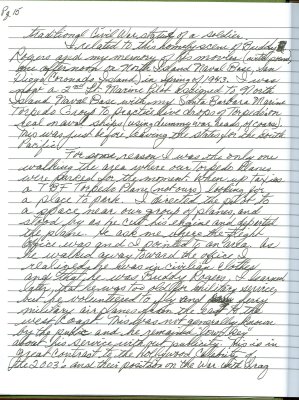 Pg 15
traditional Civil War statue of a soldier.
I related to this homely scene of Buddy
Rogers and my memory of his movies (with sound)
one afternoon on North Island Naval Base, San
Diego (Coronado Island) in Spring of 1943. I was
a 2nd Lt. Marine Pilot assigned to North
Island Naval Base with my Santa Barbara Marine
Torpedo Group to practice live drops of Torpedos on
real naval ships (using dummy war heads of course).
This was just before leaving the states for the South
Pacific.
For some reason I was the only one
walking the area where our torpedo planes
were parked at the moment when up taxied
a TBF Torpedo Plane (not ours) looking for
a place to park. I directed the pilot to
a place near our group of planes and
stood by as he cut his engine and departed
the plane. He ask me where the Flight
Office was and I pointed to an area. As
he walked away toward the office I
realized he was in civilian clothes
and that he was Buddy Rogers. I learned
later that he was too old for military service,
but he volunteered to fly and ferry
military air planes from the east to the
west Coast. This was not generally known
by the public and he remained low key
about his service with out publicity. This is in
great contrast to the Hollywood Celebrity of
the 2003's and their position on the war with Iraq